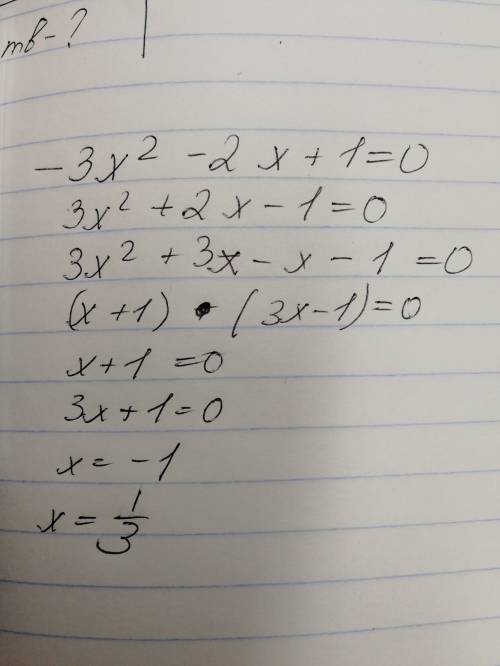 mb - ?
-3x² - 2x + 1 = 0
3x² + 2x - 1 = 0
3x² + 3x - x - 1 = 0
(x + 1) • (3x - 1) = 0
x + 1 = 0
3x + 1 = 0
x = -1
x = 1/3